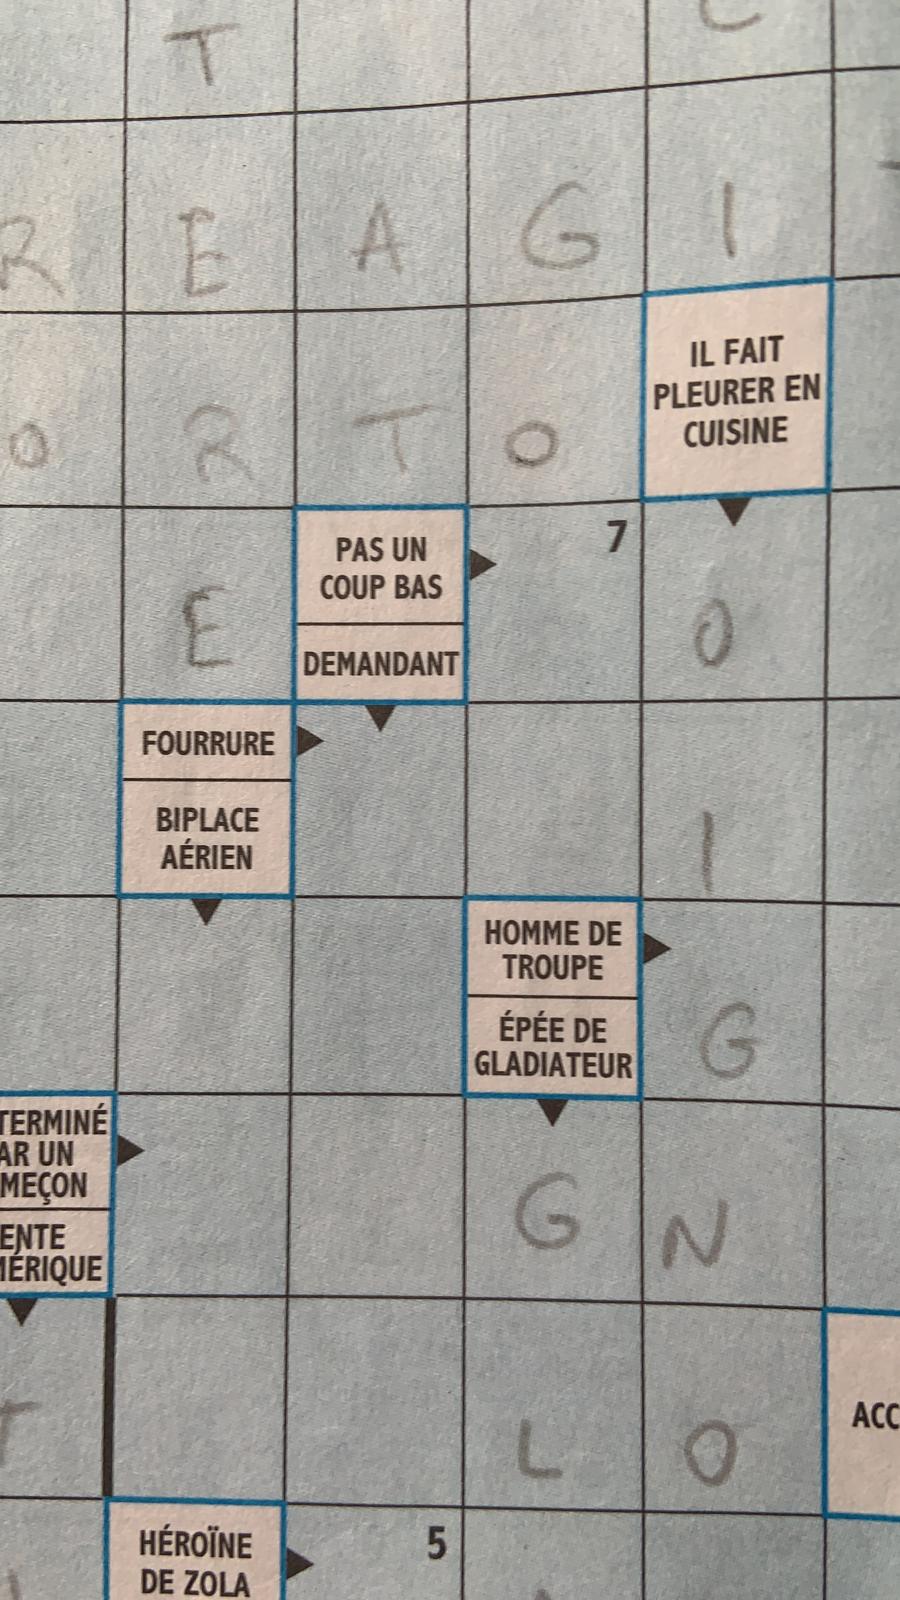 T
R E A G I
O R T O
IL FAIT
PLEURER EN
CUISINE
PAS UN
COUP BAS
DEMANDANT
7
E O
FOURRURE
BIPLACE
AÉRIEN
I
HOMME DE
TROUPE
ÉPÉE DE
GLADIATEUR
G
TERMINÉ
AR UN
MEÇON
ENTE
MÉRIQUE
G N
T L O
ACC
HÉROÏNE
DE ZOLA
5